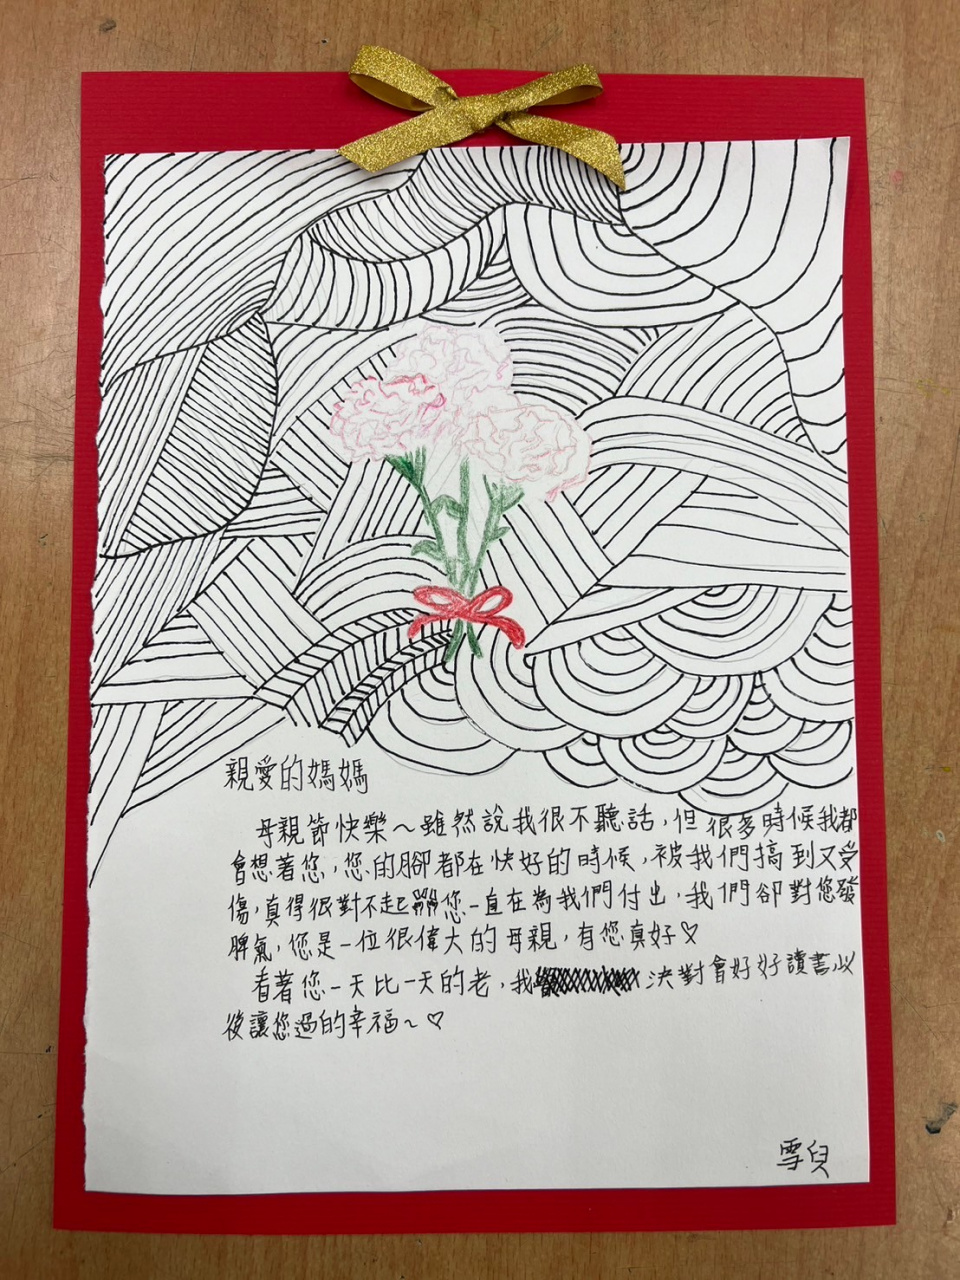 親愛的媽媽
母親節快樂～雖然說我很不聽話,但很多時候我都
會想著您,您的腳都在快好的時候,被我們搞到又受
傷,真得很對不起您一直在為我們付出,我們卻對您發
脾氣,您是一位很偉大的母親,有您真好♡
看著您一天比一天的老,我決對會好好讀書以
後讓您過的幸福～♡
雪兒